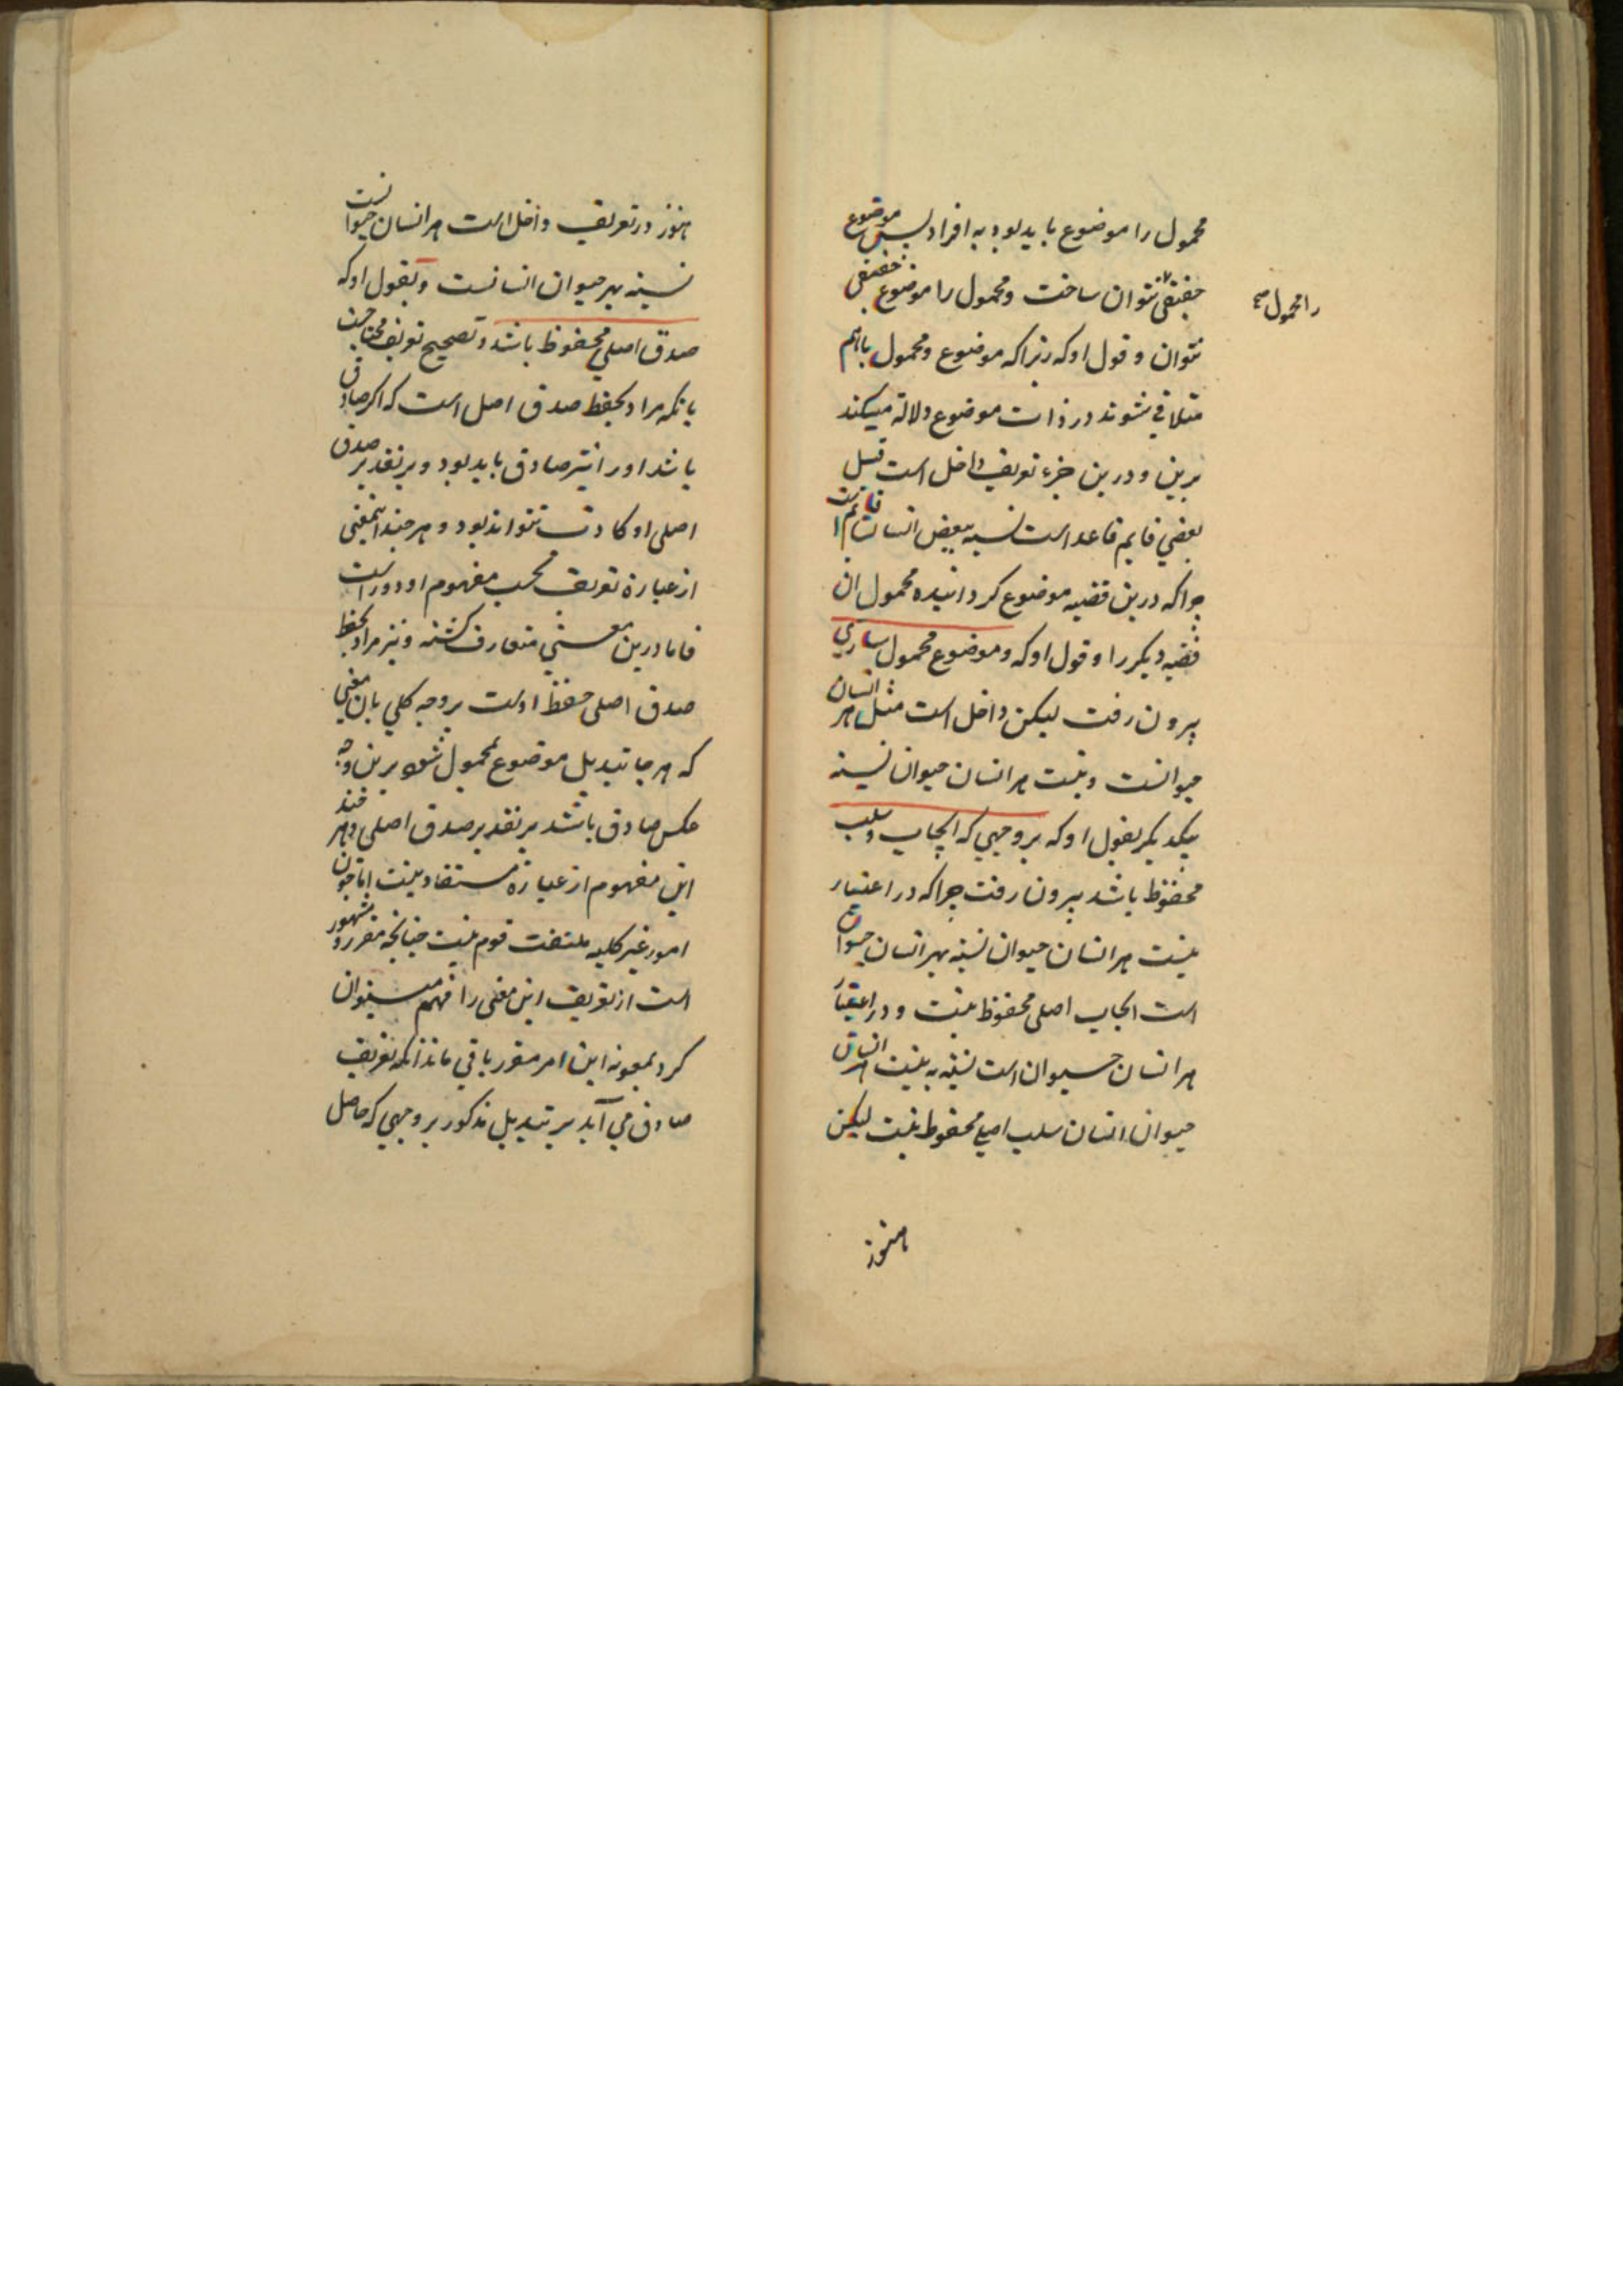 محمول را موضوع باید بود به افراد پس موضوع
حقیقی نتوان ساخت و محمول را موضوع حقیقی
را محمول صح
نتوان و قول او که زیرا که موضوع و محمول باهم
متلاقی نشوند در ذات موضوع دلالة میکند
برین و درین جزء تعریف داخل است قبل
بعضی قایم قاعد است نسبة ببعض انسان قایم است
چراکه درین قضیه موضوع کردانیده محمول ان
قضیه دیکر را و قول او که و موضوع محمول ساری
بیرون رفت لیکن داخل است مثل هر انسان
حیوانست و نیست هر انسان حیوان نسبة
بیکدیکر بقول او که بر وجهی که ایجاب و سلب
محفوظ باشد بیرون رفت چراکه در اعتبار
نیست هر انسان حیوان نسبة بهر انسان حیوان
است ایجاب اصلی محفوظ نیست و در اعتبار
هر انسان حیوان است نسبة به نیست هر انسان
حیوان انسان سلب اصلی محفوظ نیست لیکن
هنوز
هنوز در تعریف داخل است هر انسان حیوانست
نسبة بهر حیوان انسانست و بقول او که
صدق اصلی محفوظ باشد و تصحیح تعریف محتاجست
بانکه مراد بحفظ صدق اصل است که اکر صادق
باشد او را نیز صادق باید بود و بر تقدیر صدق
اصلی او کاذب نتواند بود و هر چند اینمعنی
از عبارة تعریف بحسب مفهوم او دور است
فاما درین معنی متعارف کشته و نیز مراد بحفظ
صدق اصلی حفظ اوست بر وجه کلی بان معنی
که هر جا تبدیل موضوع بمحمول شود برین وجه
عکس صادق باشد بر تقدیر صدق اصلی و هر چند
این مفهوم از عبارة مستفاد نیست اما چون
امور غیر کلیه ملتفت قوم نیست چنانچه مقرر و مشهور
است از تعریف این معنی را فهم میتوان
کرد بمعونه این امر مقرر باقی ماند انکه تعریف
صادق می آید بر تبدیل مذکور بر وجهی که حاصل